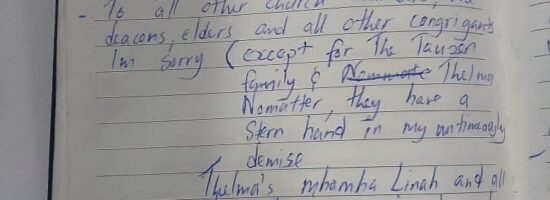 - To all other church
deacons, elders and all other congrigants
I'm Sorry (except for The Tauzen
family & Thelma
Nomatter, they have a
Stern hand in my untimeously
demise
Thelma's mhamha Linah and all